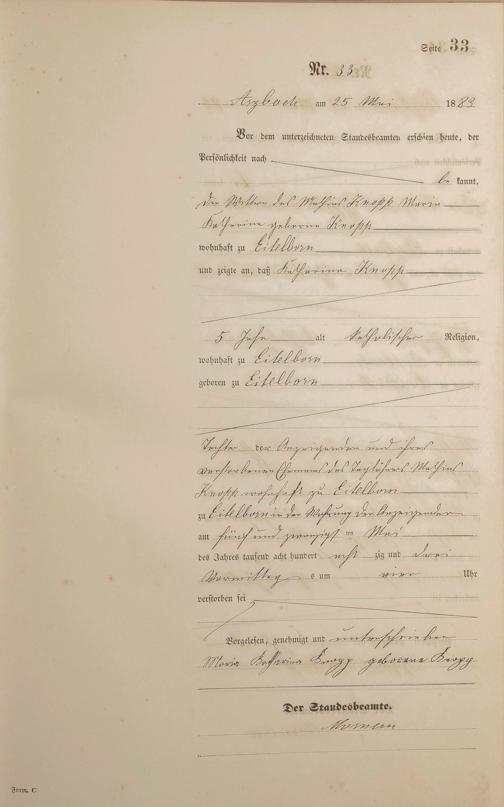 Seite 33
Nr. 33
Arzbach am 25 Mai 1883
Vor dem unterzeichneten Standesbeamten erschien heute, der
Persönlichkeit nach
be kannt,
die Wittwe des Mathias Knopp Maria
Katharina geborene Knopp
wohnhaft zu Eitelborn
und zeigte an, daß Katharina Knopp
5 Jahr alt katholischer Religion,
wohnhaft zu Eitelborn
geboren zu Eitelborn
Tochter der Anzeigenden und ihres
verstorbenen Ehemans des Taglöhners Mathias
Knopp wohnhaft zu Eitelborn
zu Eitelborn in der Wohnung der Anzeigenden
am fünf und zwanzigst en Mai
des Jahres tausend acht hundert acht zig und drei
Vormittag s um vier Uhr
verstorben sei
Vorgelesen, genehmigt und unterschrieben
Maria Katharina Knopp geborene Knopp
Der Standesbeamte.
Form. C.